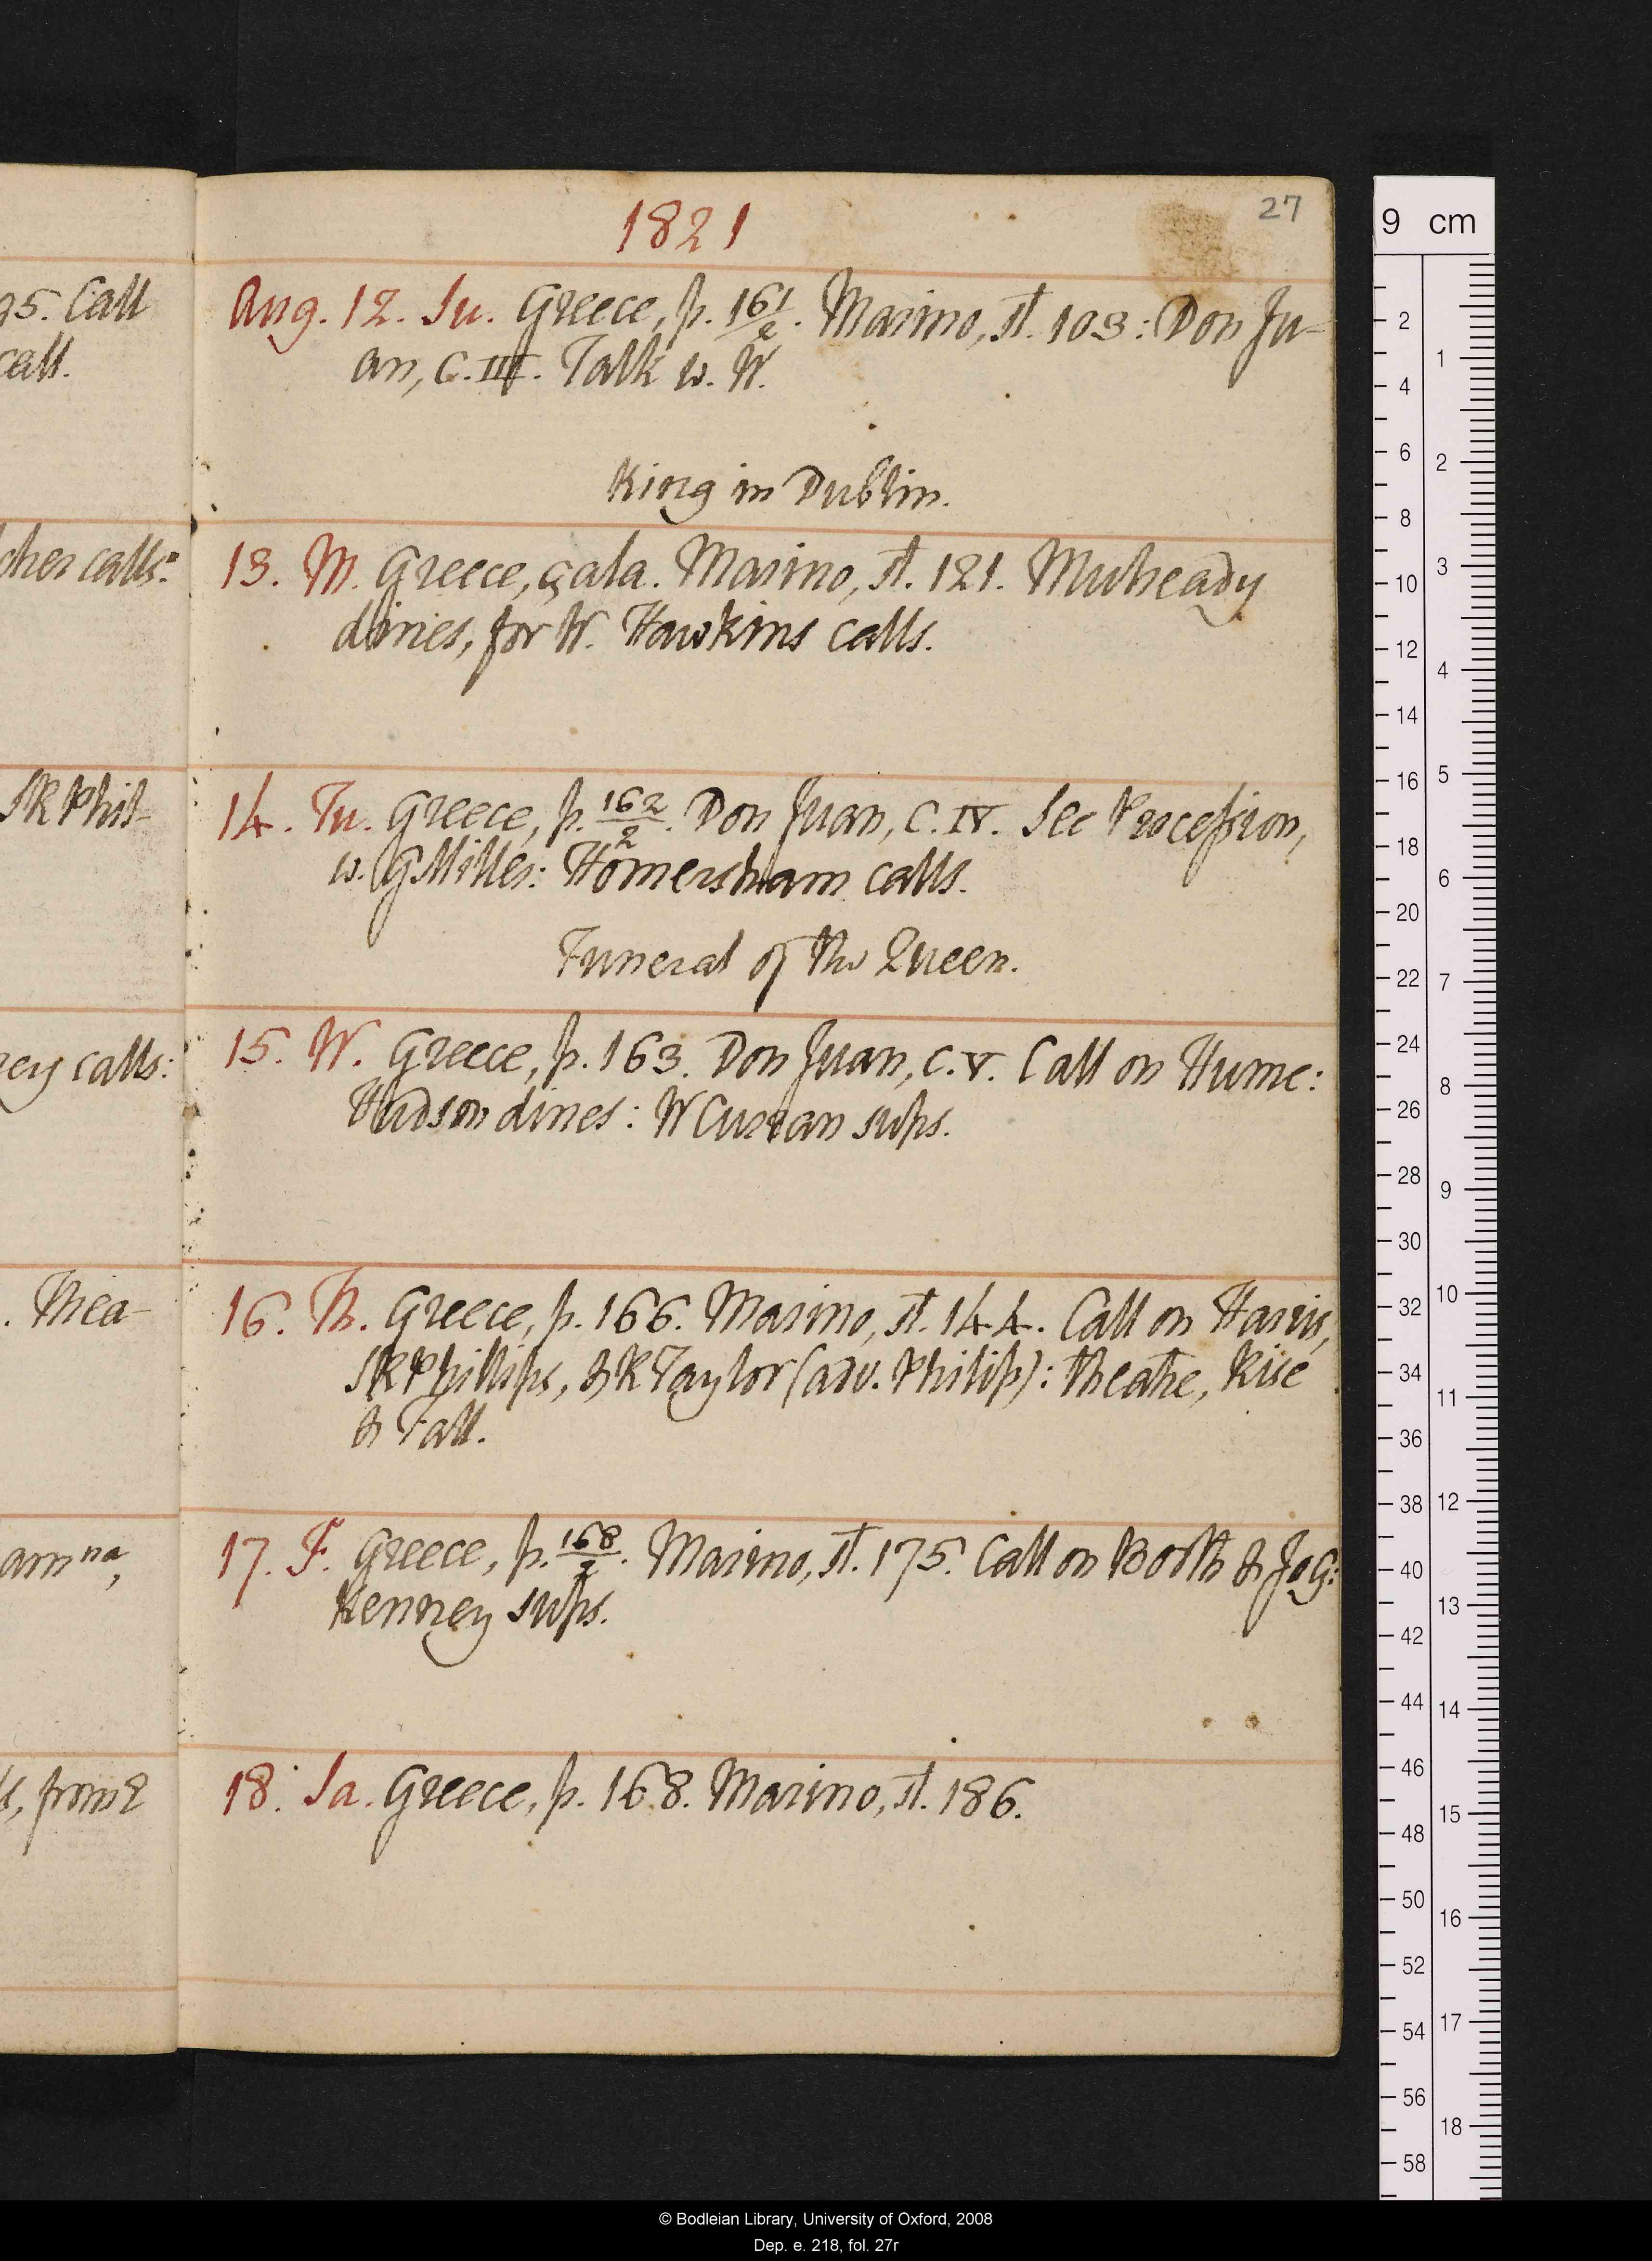 95. Call
call.
cher calls:
SR Phil-
ney calls:
. Thea-
am^na,
s, from 2
27
1821
Aug. 12. Su. Greece, p. 161/2. Marino, st. 103: Don Ju-
an, C. III. Talk w. W.
King in Dublin.
13. M. Greece, çala. Marino, st. 121. Mulready
dines, for W. Hawkins calls.
14. Tu. Greece, p. 162/2. Don Juan, C. IV. See Procession,
w. G Milles: Homersham calls.
Funeral of the Queen.
15. W. Greece, p. 163. Don Juan, C. V. Call on Hume:
Hudson dines: W Curran sups.
16. Th. Greece, p. 166. Marino, st. 144. Call on Harris,
SR Phillips, & R Taylor (adv. Philip): theatre, Rise
& Fall.
17. F. Greece, p. 168/2. Marino, st. 175. Call on Booth & Jos G:
Kenney sups.
18. Sa. Greece, p. 168. Marino, st. 186.
9 cm
2
4
6
8
10
12
14
16
18
20
22
24
26
28
30
32
34
36
38
40
42
44
46
48
50
52
54
56
58
1
2
3
4
5
6
7
8
9
10
11
12
13
14
15
16
17
18
© Bodleian Library, University of Oxford, 2008
Dep. e. 218, fol. 27r